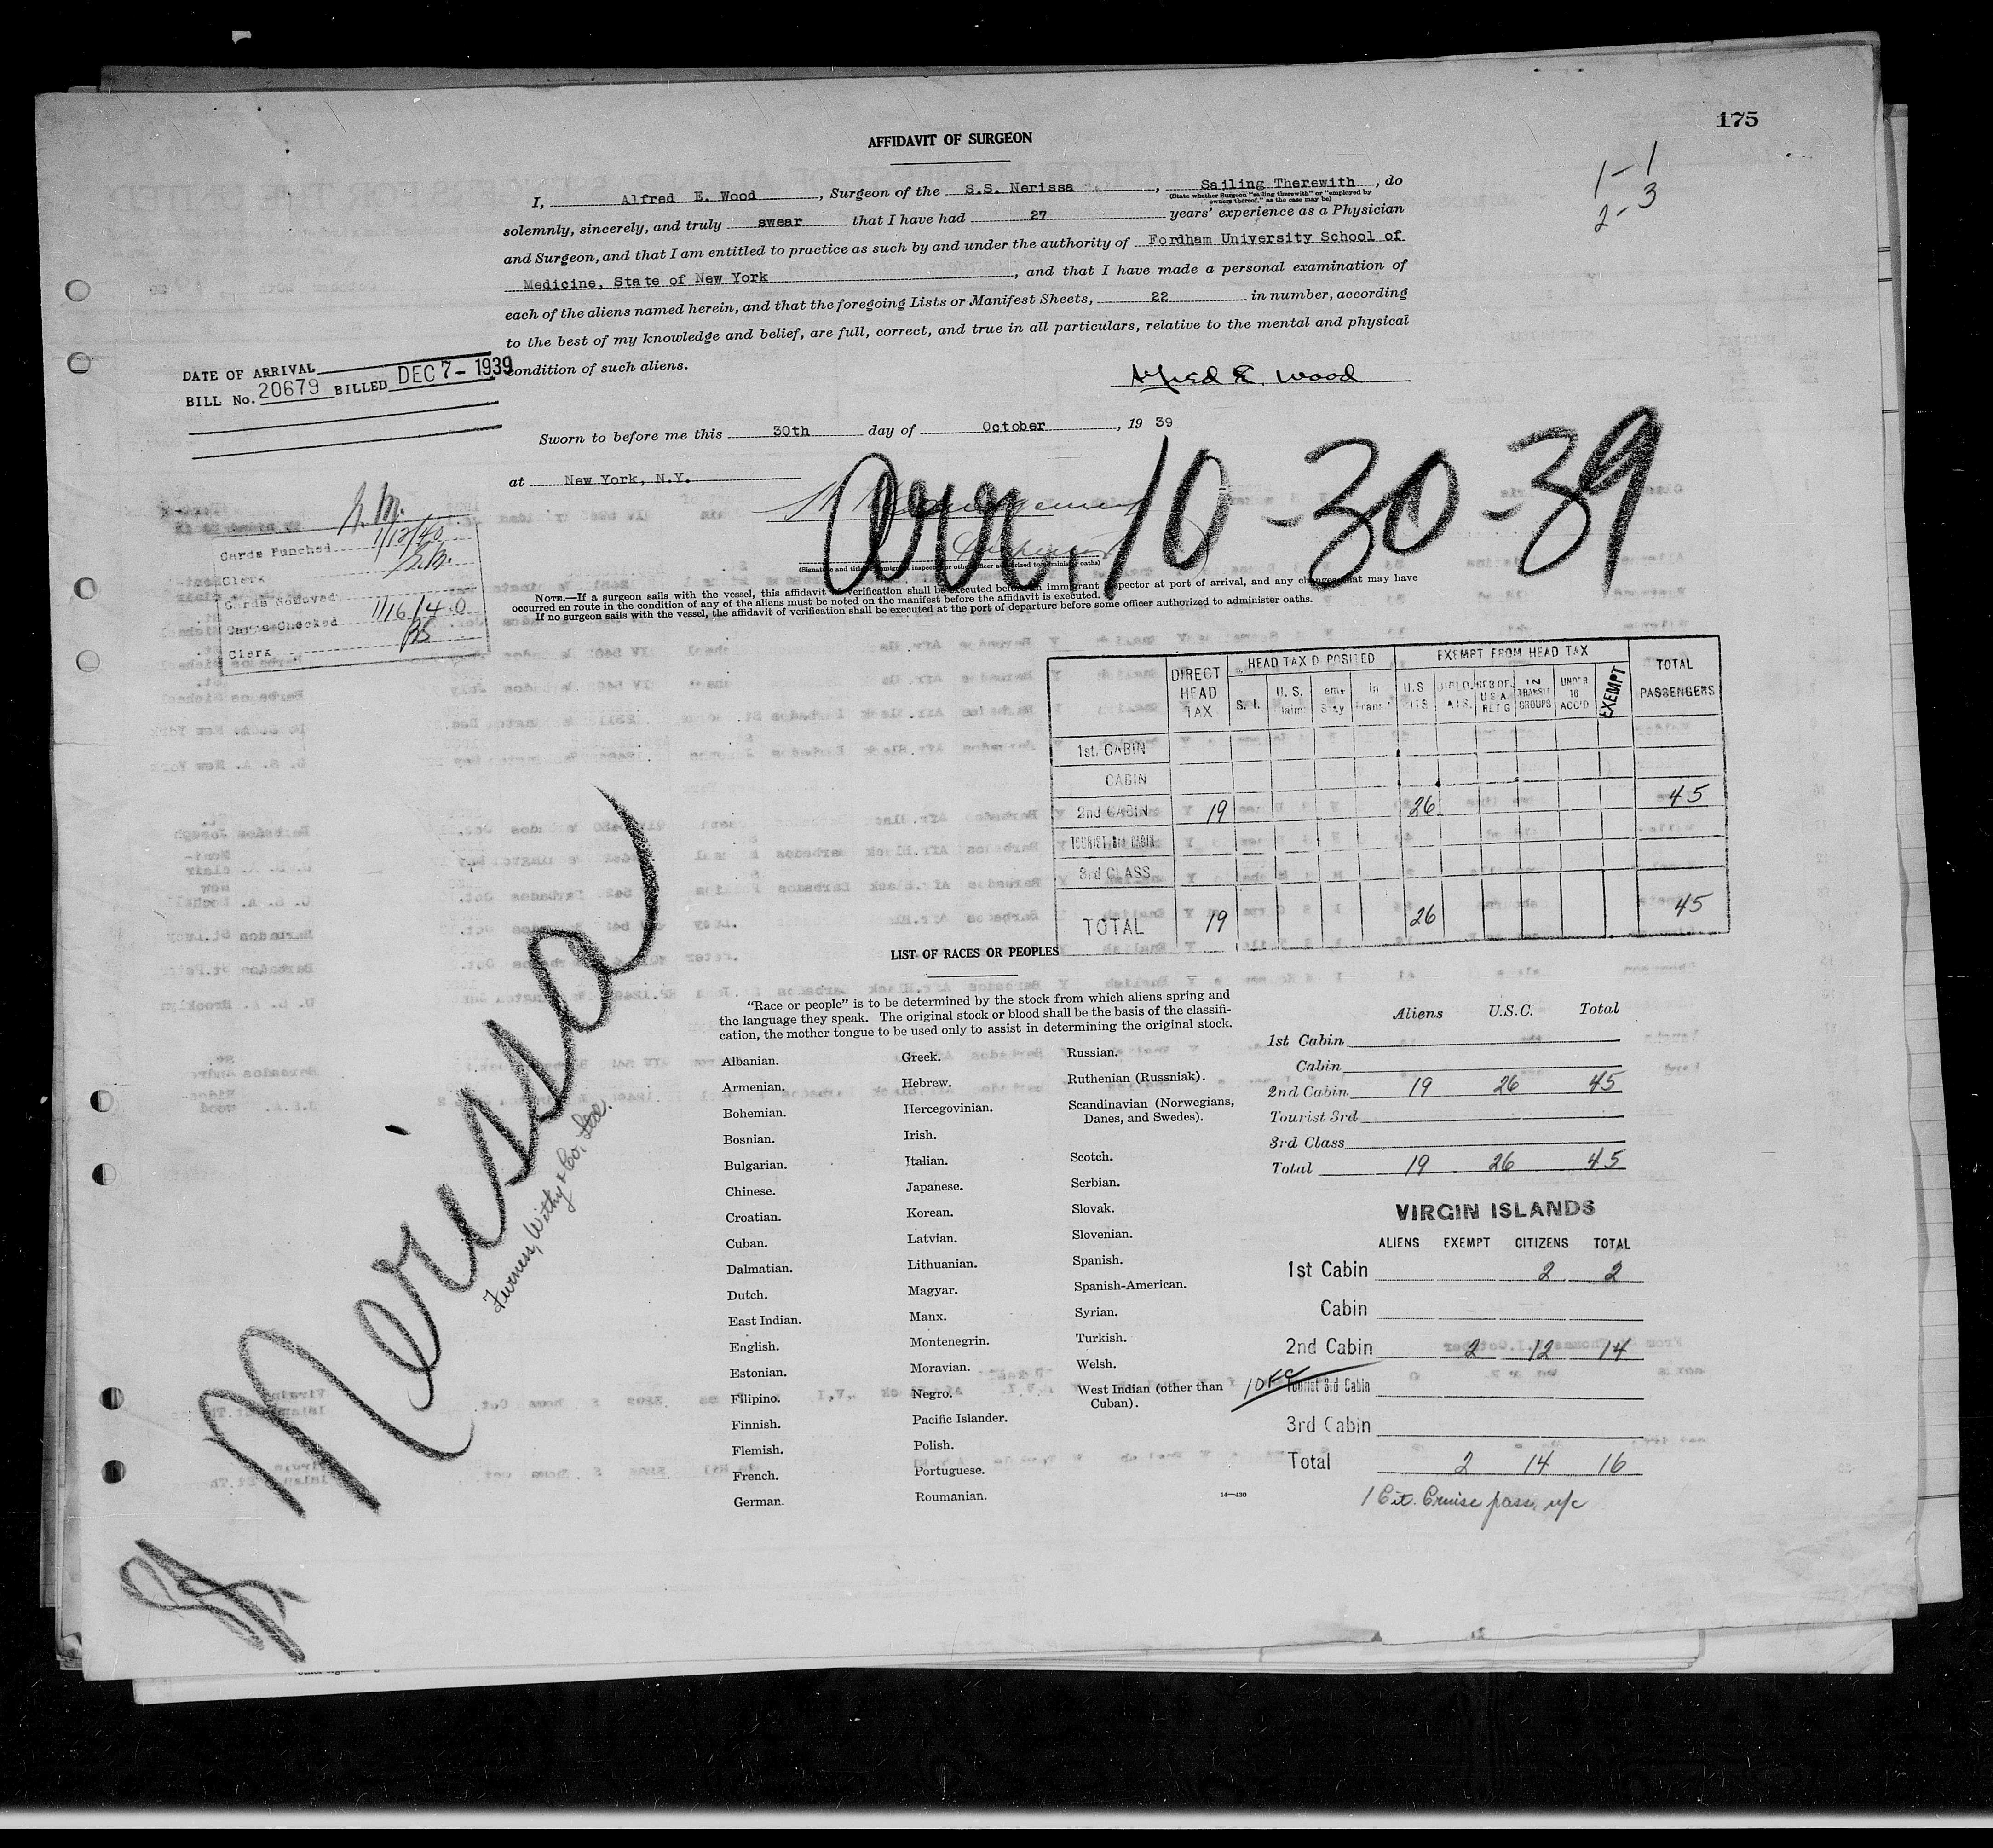 175
AFFIDAVIT OF SURGEON
1 - 1
2 - 3
I, Alfred E. Wood, Surgeon of the S.S. Nerissa, Sailing Therewith, do
(State whether Surgeon "sailing therewith" or "employed by
owners thereof," as the case may be)
solemnly, sincerely, and truly swear that I have had 27 years' experience as a Physician
and Surgeon, and that I am entitled to practice as such by and under the authority of Fordham University School of
Medicine, State of New York, and that I have made a personal examination of
each of the aliens named herein, and that the foregoing Lists or Manifest Sheets, 22 in number, according
to the best of my knowledge and belief, are full, correct, and true in all particulars, relative to the mental and physical
condition of such aliens.
DATE OF ARRIVAL
BILL No. 20679 BILLED DEC 7 - 1939
Alfred E. Wood
Sworn to before me this 30th day of October, 19 39
at New York, N.Y.
Arr. 10-30-39
Cards Punched 1/12/40
Clerk
Cards Removed
Cards Checked 1/16/40
Clerk BS
NOTE.—If a surgeon sails with the vessel, this affidavit of verification shall be executed before an immigrant inspector at port of arrival, and any changes that may have
occurred en route in the condition of any of the aliens must be noted on the manifest before the affidavit is executed.
If no surgeon sails with the vessel, the affidavit of verification shall be executed at the port of departure before some officer authorized to administer oaths.
DIRECT HEAD TAX HEAD TAX D POSITED EXEMPT FROM HEAD TAX TOTAL PASSENGERS
U.S. IN TRANSIT GROUPS UNDER 16 ACC'D EXEMPT
1st. CABIN
CABIN
2nd CABIN 19 26 45
TOURIST 3rd CABIN
3rd CLASS
TOTAL 19 26 45
Nerissa
Furness, Withy & Co. Ltd.
LIST OF RACES OR PEOPLES
"Race or people" is to be determined by the stock from which aliens spring and
the language they speak. The original stock or blood shall be the basis of the classifi-
cation, the mother tongue to be used only to assist in determining the original stock.
Albanian.
Armenian.
Bohemian.
Bosnian.
Bulgarian.
Chinese.
Croatian.
Cuban.
Dalmatian.
Dutch.
East Indian.
English.
Estonian.
Filipino.
Finnish.
Flemish.
French.
German.
Greek.
Hebrew.
Hercegovinian.
Irish.
Italian.
Japanese.
Korean.
Latvian.
Lithuanian.
Magyar.
Manx.
Montenegrin.
Moravian.
Negro.
Pacific Islander.
Polish.
Portuguese.
Roumanian.
Russian.
Ruthenian (Russniak).
Scandinavian (Norwegians,
Danes, and Swedes).
Scotch.
Serbian.
Slovak.
Slovenian.
Spanish.
Spanish-American.
Syrian.
Turkish.
Welsh.
West Indian (other than
Cuban).
14—430
Aliens U.S.C. Total
1st Cabin
Cabin
2nd Cabin 19 26 45
Tourist 3rd
3rd Class
Total 19 26 45
VIRGIN ISLANDS
ALIENS EXEMPT CITIZENS TOTAL
1st Cabin 2 2
Cabin
2nd Cabin 2 12 14
Tourist 3rd Cabin
3rd Cabin
Total 2 14 16
1 Cit. Cruise pass. n/c